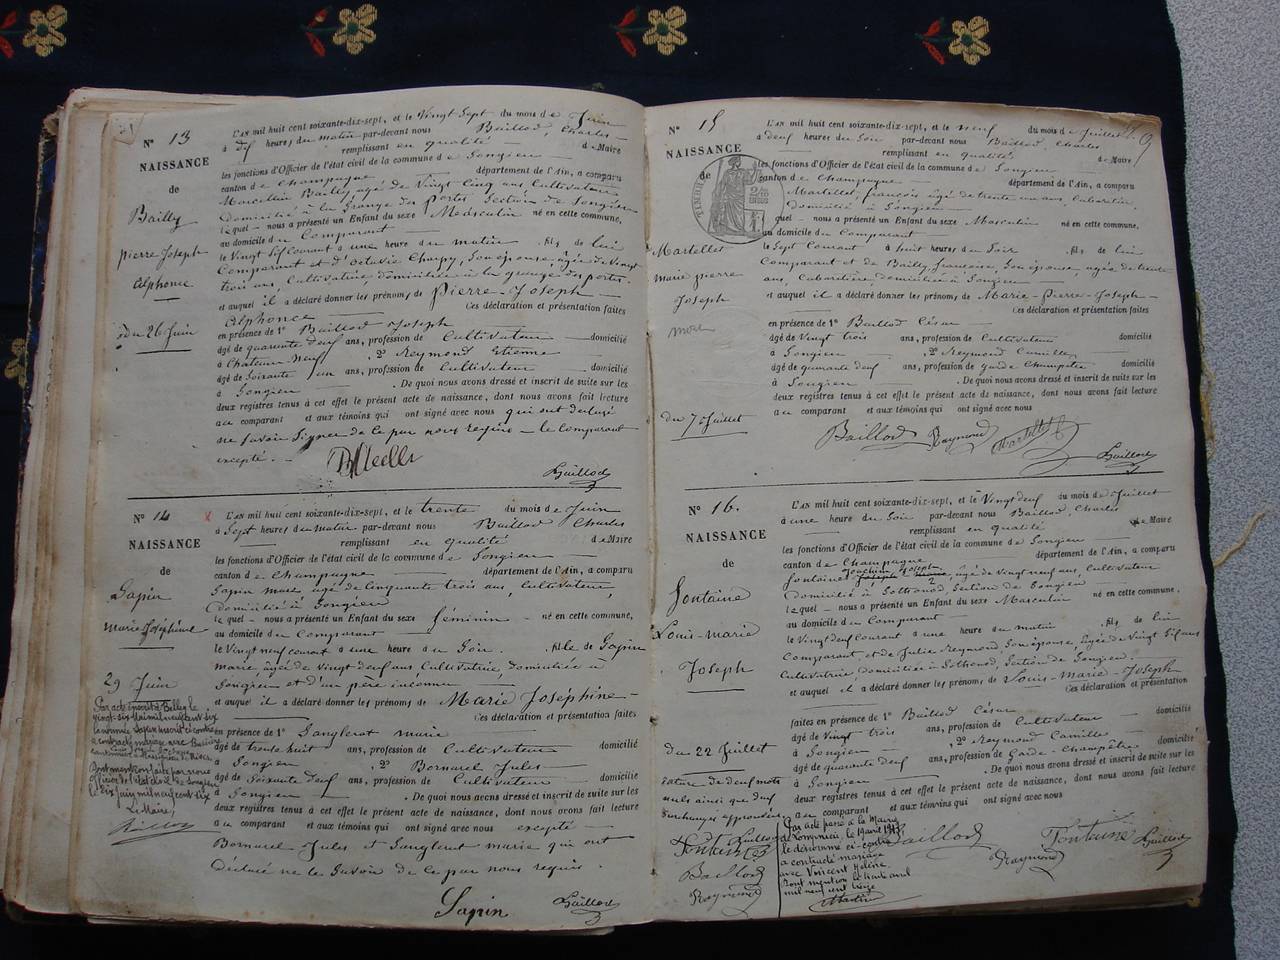 No 13
NAISSANCE
de
Bailly
pierre Joseph
Alphonce
du 26 Juin
L'AN mil huit cent soixante-dix-sept, et le Vingt Sept du mois de Juin
à heures du matin par-devant nous Baillod, Charles
remplissant en qualité de Maire
les fonctions d'Officier de l'état civil de la commune de Songieu
canton de Champagne département de l'Ain, a comparu
Marcellin Bailly, agé de Vingt Cinq ans, Cultivateur
Domicilié à la Grange des portes Section de Songieu
lequel nous a présenté un Enfant du sexe Masculin né en cette commune,
au domicile du Comparant
le Vingt Six Courant à une heure du matin fils de lui
Comparant et d'Octavie Charpy, Son épouse, agée de Vingt
trois ans, Cultivatrice, domiciliée à la grange des portes
et auquel il a déclaré donner les prénoms de Pierre-Joseph
Alphonce Ces déclaration et présentation faites
en présence de 1o Baillod Joseph
âgé de quarante deux ans, profession de Cultivateur domicilié
à Chateau neuf 2o Reymond Etienne
âgé de Soixante un ans, profession de Cultivateur domicilié
à Songieu De quoi nous avons dressé et inscrit de suite sur les
deux registres tenus à cet effet le présent acte de naissance, dont nous avons fait lecture
au comparant et aux témoins qui ont signé avec nous qui ont déclaré
ne Savoir Signer de ce par nous requis - le comparant
excepté.
Baillod
No 14
NAISSANCE
de
Sapin
marie Joséphine
29 Juin
L'AN mil huit cent soixante-dix-sept, et le trente du mois de Juin
à Sept heures du matin par-devant nous Baillod Charles
remplissant en qualité de Maire
les fonctions d'Officier de l'état civil de la commune de Songieu
canton de Champagne département de l'Ain, a comparu
Sapin agé de Cinquante trois ans, Cultivateur,
Domicilié à Songieu
lequel nous a présenté un Enfant du sexe féminin né en cette commune,
au domicile du Comparant
le Vingt neuf courant à une heure du Soir. fille de Sapin
marie, agée de Vingt deux ans Cultivatrice, domiciliée à
Songieu et d'un père inconnu
et auquel il a déclaré donner les prénoms de Marie Joséphine
Ces déclaration et présentation faites
en présence de 1o Sanglerat marie
âgé de trente huit ans, profession de Cultivateur domicilié
à Songieu 2o Bornarel Jules
âgé de Soixante deux ans, profession de Cultivateur domicilié
à Songieu De quoi nous avons dressé et inscrit de suite sur les
deux registres tenus à cet effet le présent acte de naissance, dont nous avons fait lecture
au comparant et aux témoins qui ont signé avec nous excepté
Bornarel Jules et Sanglerat marie qui ont
Déclaré ne le Savoir de ce par nous requis
Sapin Baillod
Par acte inscrit à Belley le
vingt-six Mai mil neuf cent six
a contracté mariage avec
Dont mention faite par nous
officier de l'état civil de Songieu
le six juin mil neuf cent six
Le Maire,
No 15
NAISSANCE
de
Martellet
marie pierre
Joseph
mort
du 7 Juillet
L'AN mil huit cent soixante-dix-sept, et le neuf du mois de Juillet
à deux heures du Soir par-devant nous Baillod, Charles
remplissant en qualité de Maire
les fonctions d'Officier de l'état civil de la commune de Songieu
canton de Champagne département de l'Ain, a comparu
Martellet, françois agé de trente un ans, Cabaretier,
domicilié à Songieu
quel nous a présenté un Enfant du sexe Masculin né en cette commune,
au domicile du Comparant
le Sept Courant à huit heures du Soir fils de lui
Comparant et de Bailly, françoise, Son épouse, agée de trente
ans, Cabaretière, domiciliée à Songieu
et auquel il a déclaré donner les prénoms de Marie-Pierre-Joseph
Ces déclaration et présentation faites
en présence de 1o Baillod César
âgé de Vingt trois ans, profession de Cultivateur domicilié
à Songieu 2o Reymond Camille
âgé de quarante deux ans, profession de garde Champêtre domicilié
à Songieu De quoi nous avons dressé et inscrit de suite sur les
deux registres tenus à cet effet le présent acte de naissance, dont nous avons fait lecture
au comparant et aux témoins qui ont signé avec nous
Baillod Raymond Martellet
Baillod
No 16.
NAISSANCE
de
Fontaine
Louis-marie
Joseph
du 22 Juillet
L'AN mil huit cent soixante-dix-sept, et le Vingt deux du mois de Juillet
à une heure du Soir par-devant nous Baillod, Charles
remplissant en qualité de Maire
les fonctions d'Officier de l'état civil de la commune de Songieu
canton de Champagne département de l'Ain, a comparu
fontaine Joachim Joseph agé de Vingt neuf ans, Cultivateur
Domicilié à Sothonod, Section de Songieu
lequel nous a présenté un Enfant du sexe Masculin né en cette commune,
au domicile du Comparant
le Vingt deux Courant à une heure du matin fils de lui
Comparant, et de Julie Reymond, Son épouse, agée de Vingt Six ans
Cultivatrice, domiciliée à Sothonod, Section de Songieu.
et auquel il a déclaré donner les prénoms de Louis-Marie-Joseph
Ces déclaration et présentation
faites en présence de 1o Baillod César
âgé de Vingt trois ans, profession de Cultivateur domicilié
à Songieu 2o Reymond Camille
âgé de quarante deux ans, profession de Garde-Champêtre domicilié
à Songieu De quoi nous avons dressé et inscrit de suite sur les
deux registres tenus à cet effet le présent acte de naissance, dont nous avons fait lecture
au comparant et aux témoins qui ont signé avec nous
Baillod Fontaine Baillod
Raymond
rature de deux mots
nuls ainsi que deux
surcharges approuvées
Fontaine Baillod
Baillod
Raymond
Par acte passé à la Mairie
le 19 avril 1913
le dénommé ci-contre
a contracté mariage
avec Vincent Hélène
Dont mention le trente avril
mil neuf cent treize